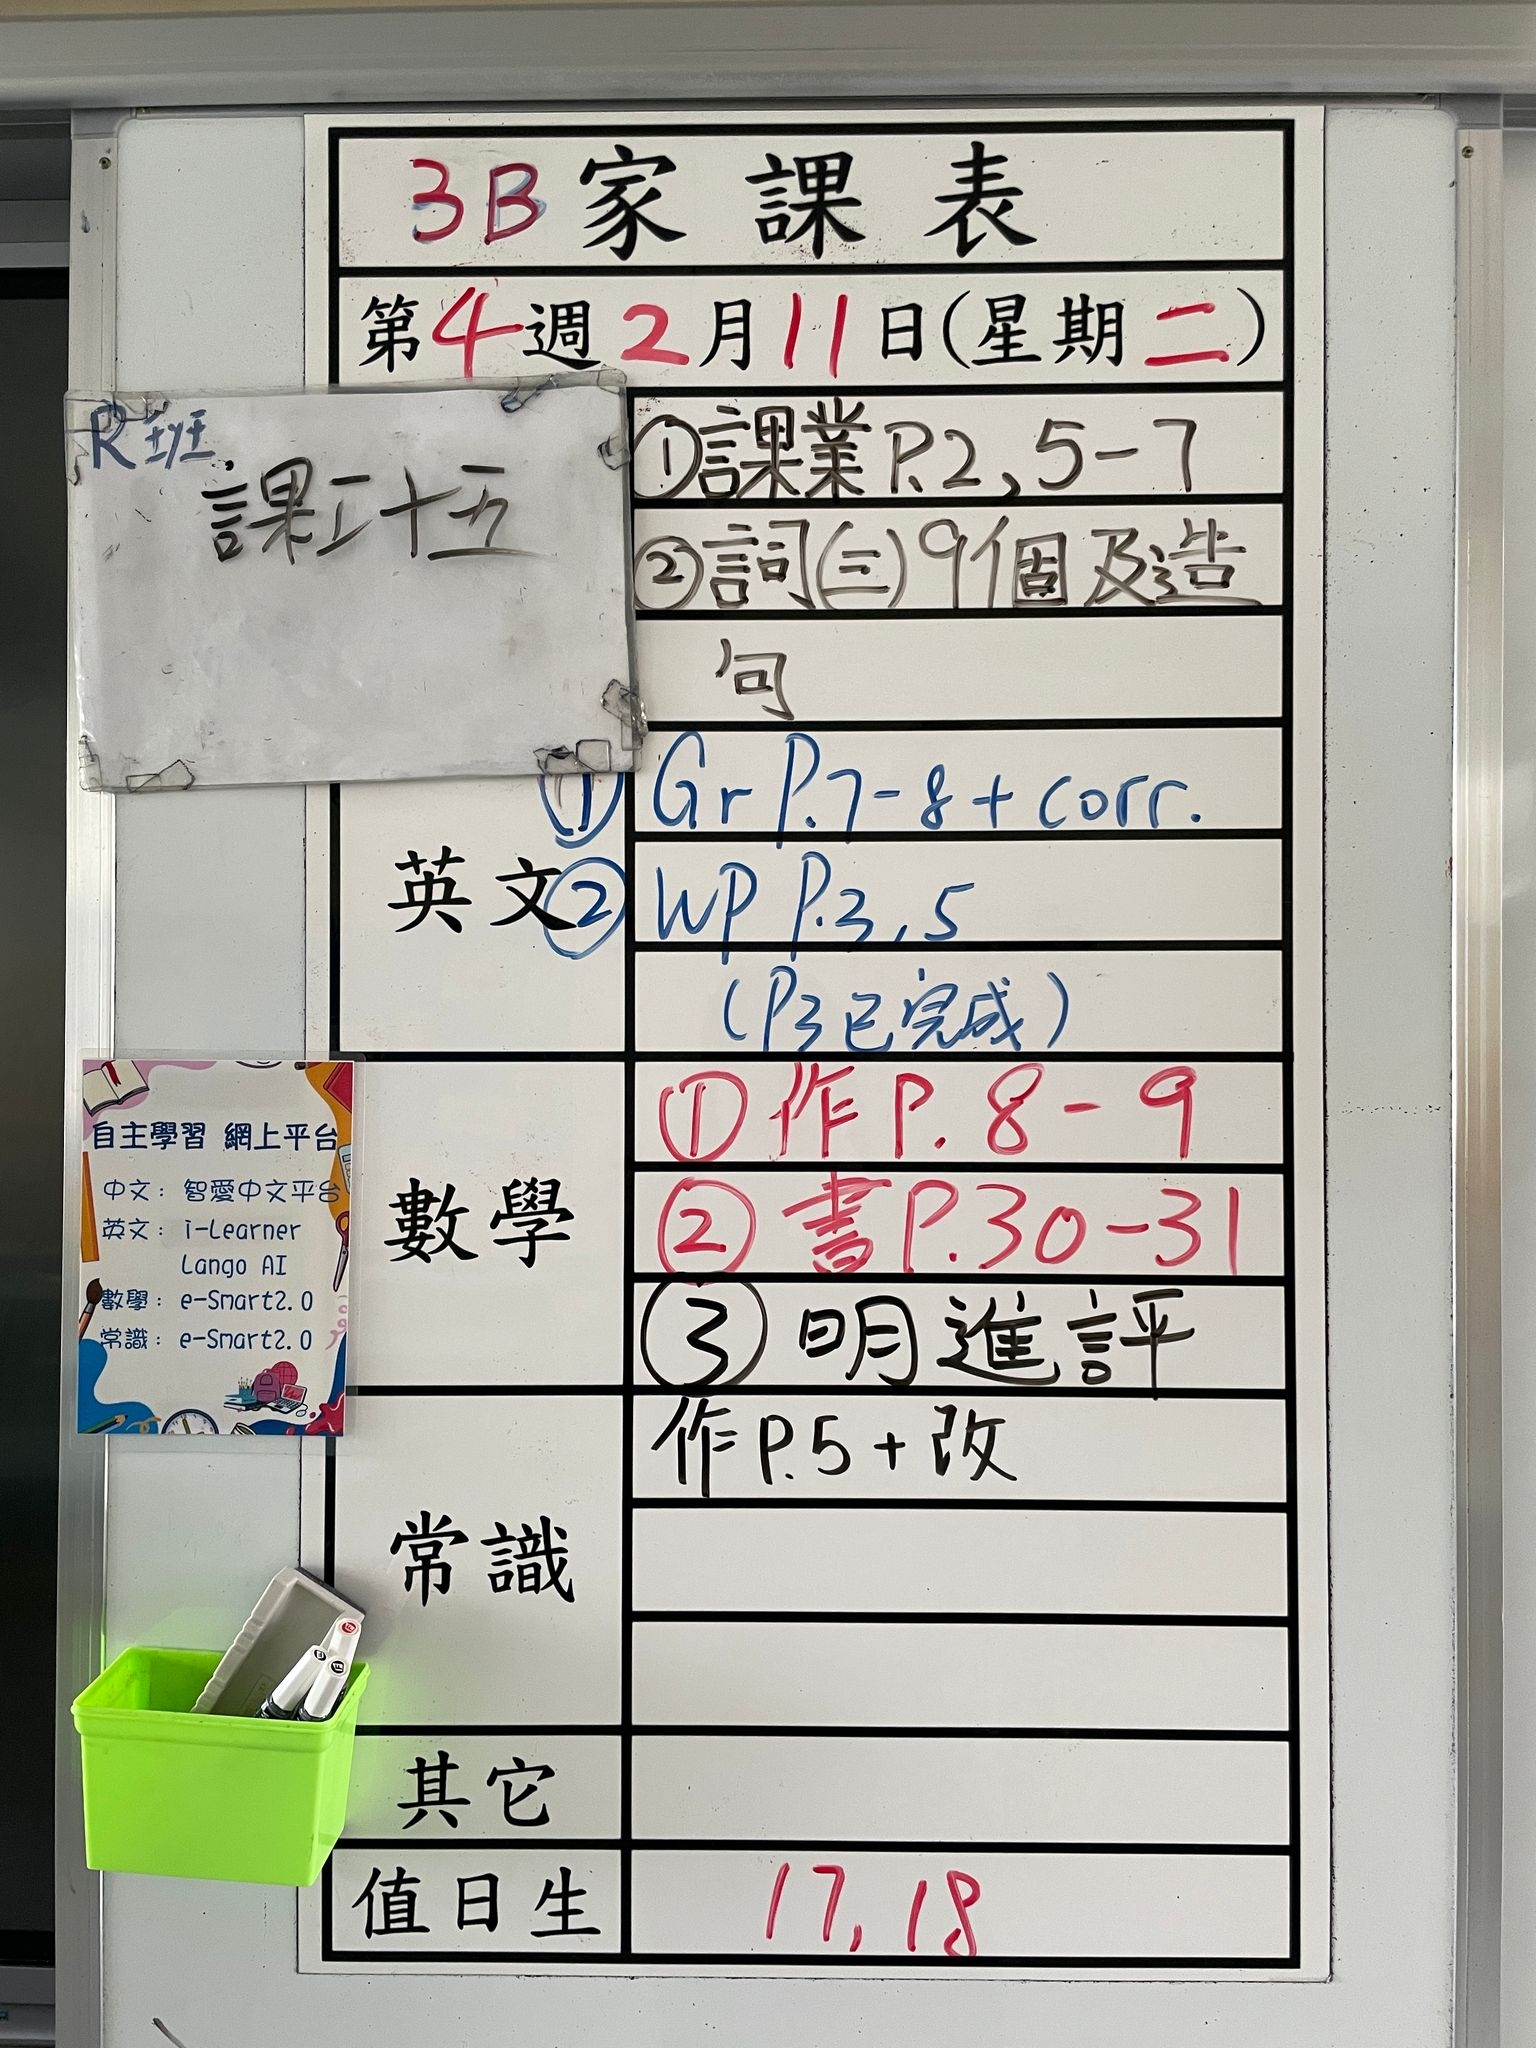 3B 家課表
第4週2月11日(星期二)
R班
課二十五
①課業P.2,5-7
②詞(三)9個及造
句
英文
①Gr P.7-8+corr.
②WP P.3,5
(P3已完成)
數學
①作P.8-9
②書P.30-31
③明進評
常識
作P.5+改
其它
值日生
17,18
自主學習 網上平台
中文:智愛中文平台
英文:i-Learner
Lango AI
數學:e-Smart2.0
常識:e-Smart2.0